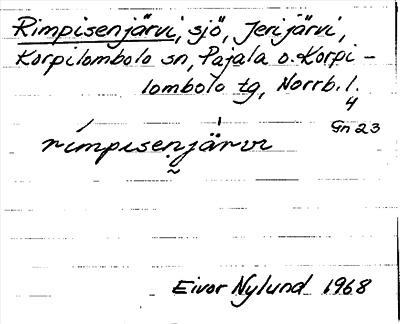 Rimpisenjärvi, sjö, Jerijärvi,
Korpilombolo sn, Pajala o. Korpi-
lombolo tg, Norrb. l.
4
Gn 23
rimpisenjärvi
Eivor Nylund 1968